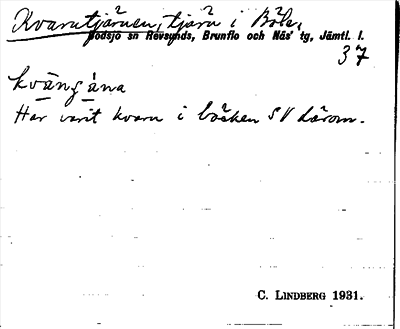 Kvarntjärnen, tjärn i Böle,
Bodsjö sn Revsunds, Brunflo och Näs' tg, Jämtl. l.
37
kvä̀ŋgána
Har varit kvarn i bäcken SV därom.
C. LINDBERG 1931.